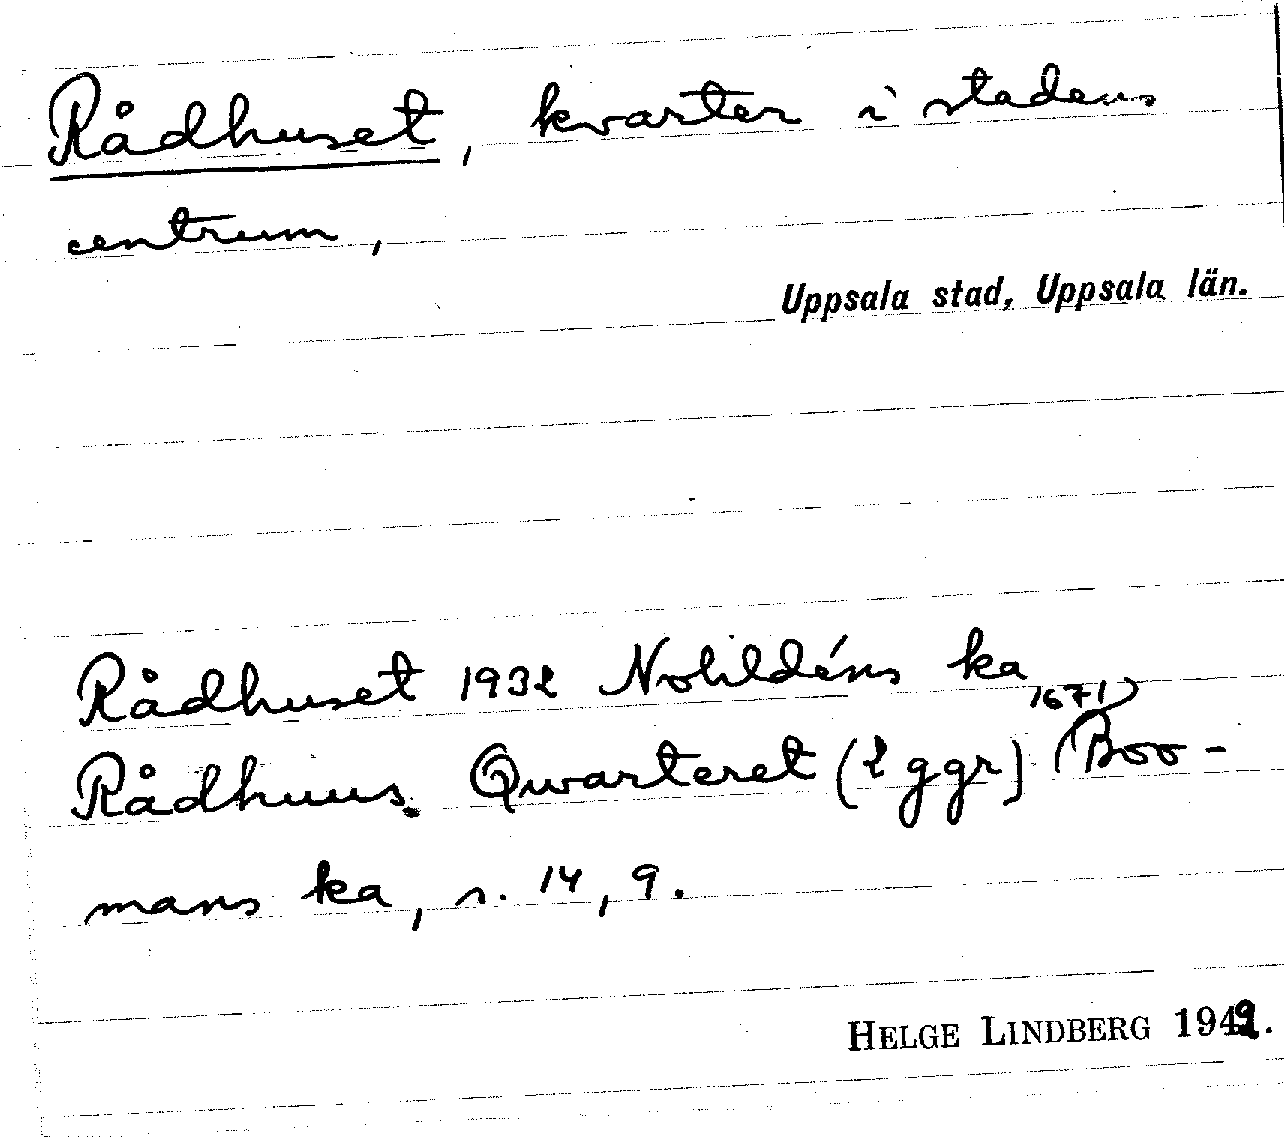 Rådhuset, kvarter i stadens
centrum,
Uppsala stad, Uppsala län.
Rådhuset 1932 Nohldéns ka
1671
Rådhuus. Qwarteret (2 ggr) Boo-
mans ka, s. 14, 9.
HELGE LINDBERG 1949.